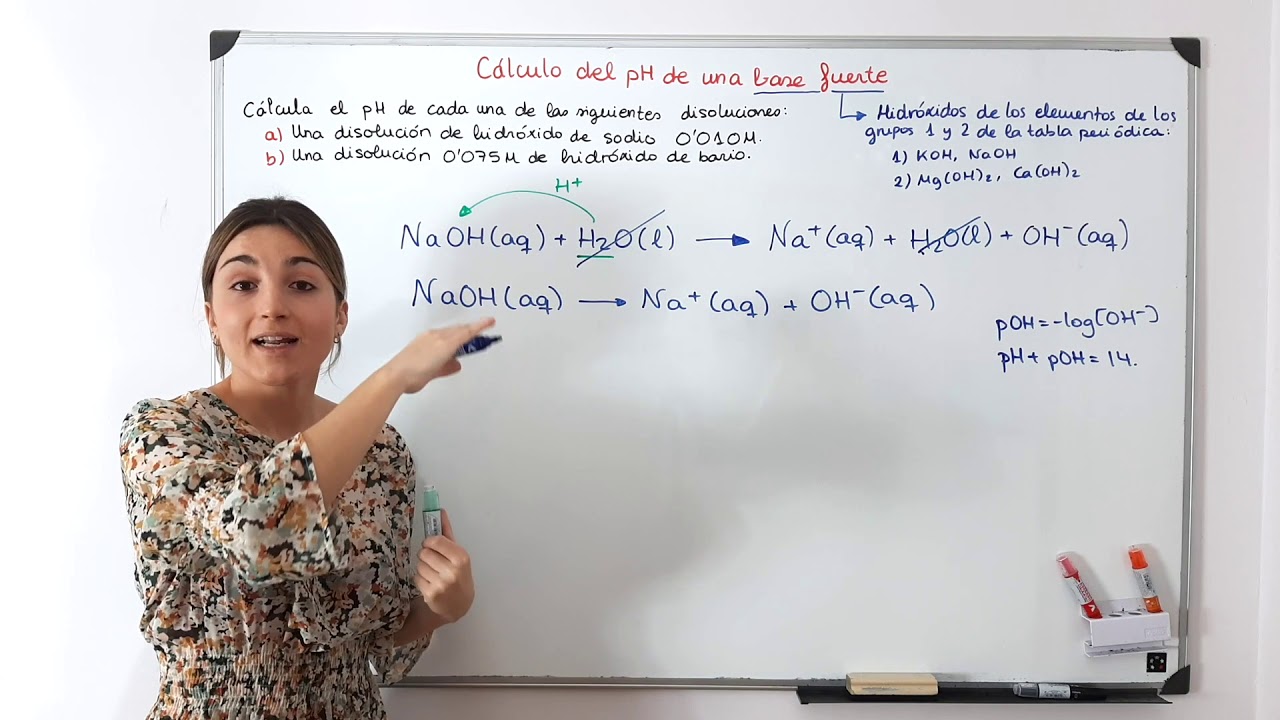 Cálculo del pH de una base fuerte
Cálcula el pH de cada una de las siguientes disoluciones:
a) Una disolución de hidróxido de sodio 0'010M.
b) Una disolución 0'075M de hidróxido de bario.
Hidróxidos de los elementos de los
grupos 1 y 2 de la tabla periódica:
1) KOH, NaOH
2) Mg(OH)₂, Ca(OH)₂
H+
NaOH(aq) + H₂O(l) → Na⁺(aq) + H₂O(l) + OH⁻(aq)
NaOH(aq) → Na⁺(aq) + OH⁻(aq)
pOH=-log[OH⁻]
pH + pOH = 14.